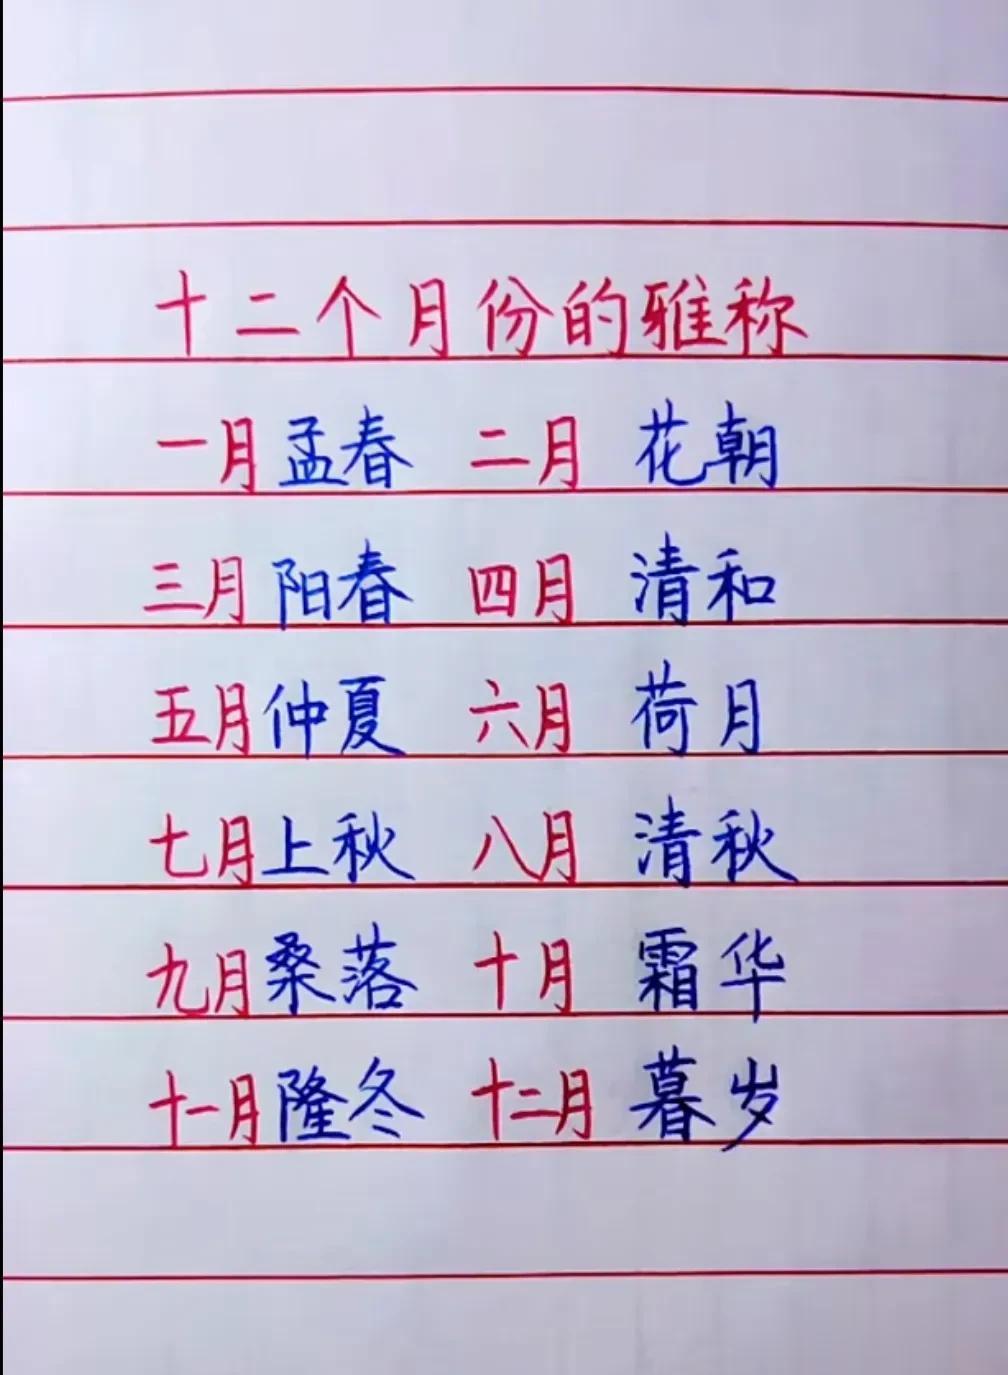 十二个月份的雅称
一月孟春 二月 花朝
三月阳春 四月 清和
五月仲夏 六月 荷月
七月上秋 八月 清秋
九月桑落 十月 霜华
十一月隆冬 十二月 暮岁